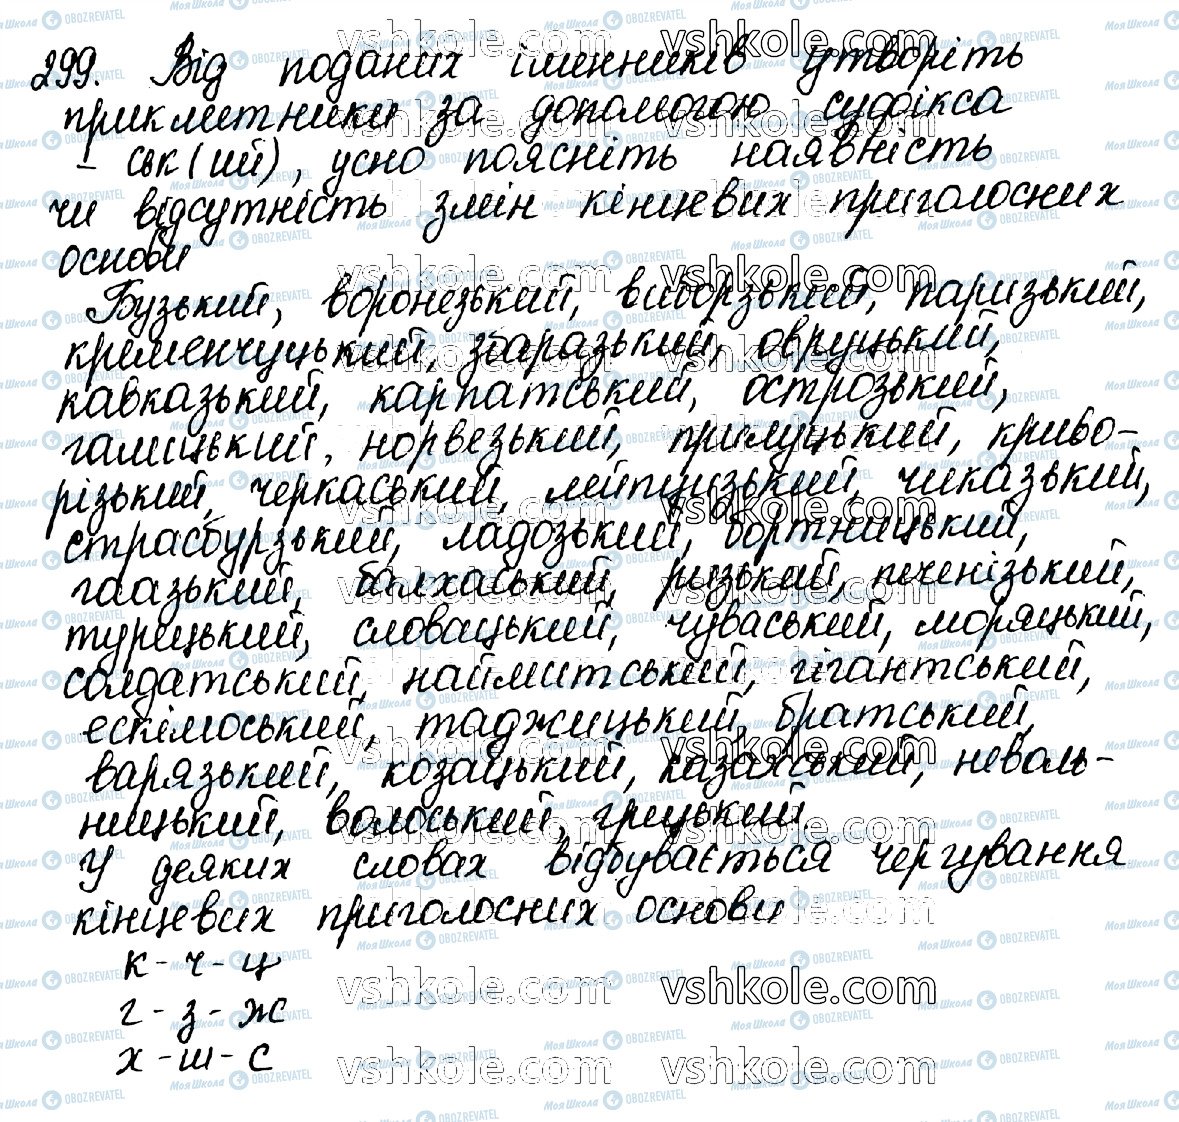 299. Від поданих іменників утворіть
прикметники за допомогою суфікса
- ськ (ий), усно поясніть наявність
чи відсутність змін кінцевих приголосних
основи
Бузький, воронезький, виборзький, паризький,
кременчуцький, збаразький, овруцький,
кавказький, карпатський, острозький,
галицький, норвезький, прилуцький, криво-
різький, черкаський, лейпцизький, чиказький,
страсбурзький, ладозький, бортницький,
гаазький, балхаський, ризький, печенізький,
турецький, словацький, чуваський, моряцький,
солдатський, наймитський, гігантський,
ескімоський, таджицький, братський,
варязький, козацький, казахський, неволь-
ницький, волоський, грецький
У деяких словах відбувається чергування
кінцевих приголосних основи
к - ч - ц
г - з - ж
х - ш - с